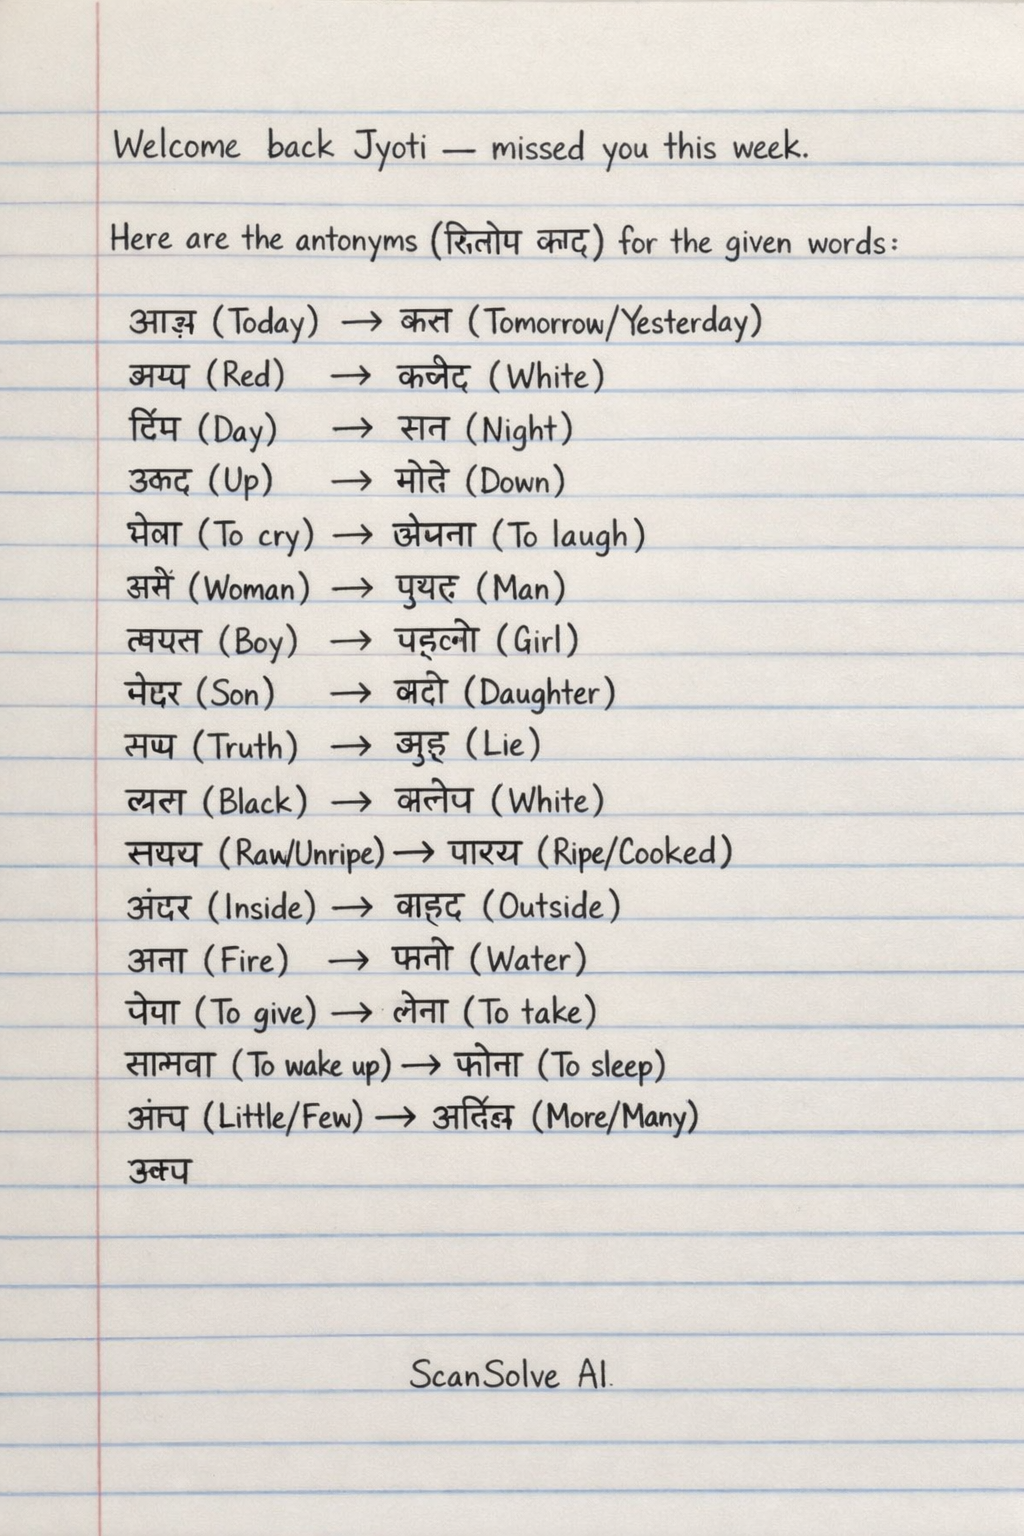 Welcome back Jyoti — missed you this week.
Here are the antonyms (सितोप काद) for the given words:
आज़ (Today) → कस (Tomorrow/Yesterday)
अय्प (Red) → कजेद (White)
दिंम (Day) → सन (Night)
उकद (Up) → मोते (Down)
भेवा (To cry) → (To laugh)
अमें (Woman) → पुयद (Man)
त्वयस (Boy) → (Girl)
मेदर (Son) → वदो (Daughter)
सप्प (Truth) → झुइ (Lie)
त्यस (Black) → कलेप (White)
सयय (Raw/Unripe) → पारय (Ripe/Cooked)
अंदर (Inside) → वाहद (Outside)
अना (Fire) → फनो (Water)
पेया (To give) → लेना (To take)
साभवा (To wake up) → फोना (To sleep)
(Little/Few) → (More/Many)
उक्प
ScanSolve AI.